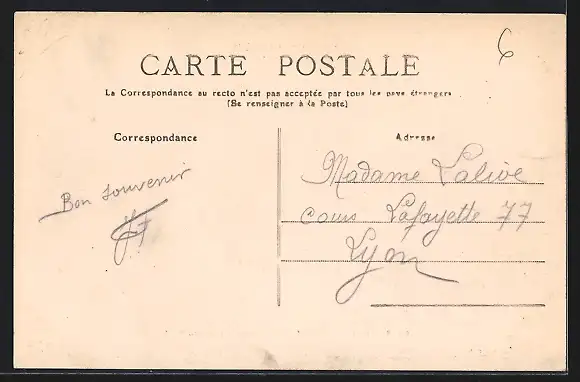 6
CARTE POSTALE
La Correspondance au recto n'est pas acceptée par tous les pays étrangers
(Se renseigner à la Poste)
Correspondance
Adresse
Bon souvenir
Madame Lalive
cours Lafayette 77
Lyon